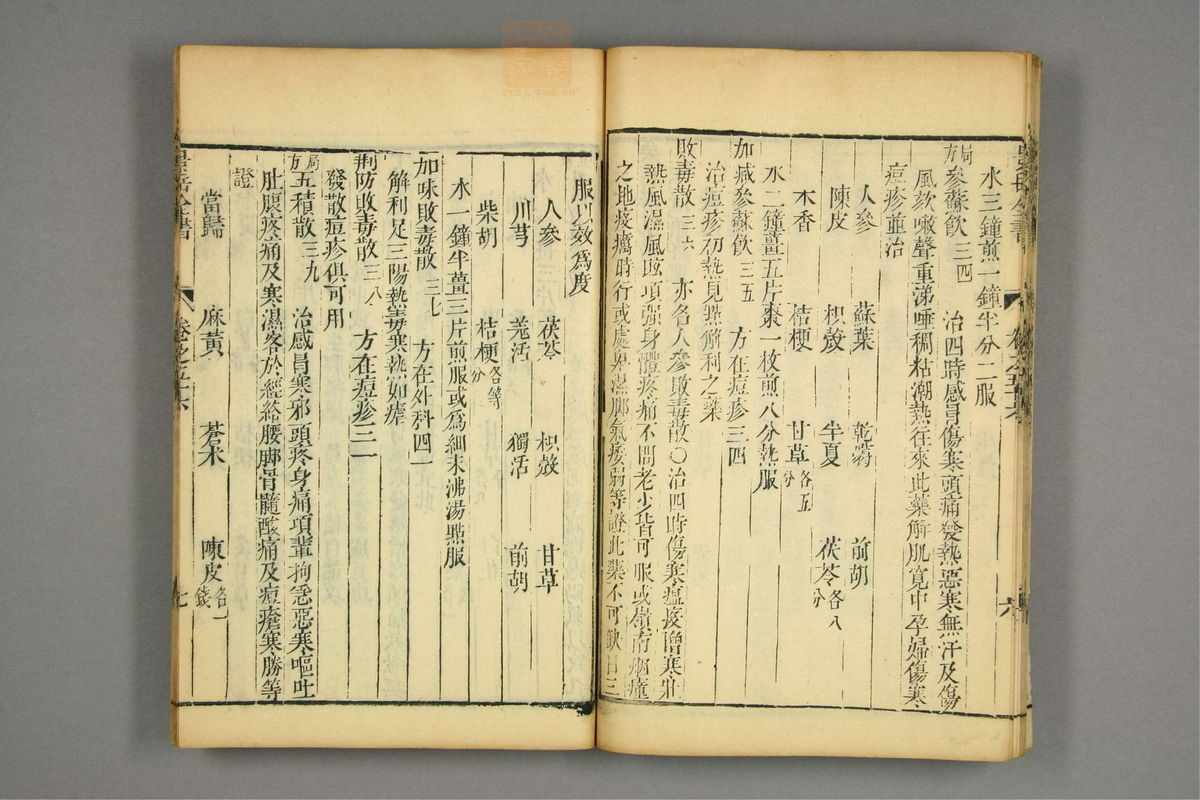 水三鐘煎一鐘半分二服
局方參蘇飲三四 治四時感冒傷寒頭痛發熱惡寒無汗及傷
風欬嗽聲重涕唾稠粘潮熱往來此藥解肌寬中孕婦傷寒
痘疹並治
人參 蘇葉 乾葛 前胡
陳皮 枳殼 半夏 茯苓各八分
木香 桔梗 甘草各五分
水二鐘薑五片棗一枚煎八分熱服
加減參蘇飲三五 方在痘疹三四
治痘疹初熱見㸃解利之藥
敗毒散三六 亦名人參敗毒散〇治四時傷寒瘟疫憎寒壯
熱風濕風眩項强身體疼痛不問老少皆可服或嶺南烟瘴
之地疫癘時行或處卑濕脚氣痿弱等證此藥不可缺日三
服以效爲度
人參 茯苓 枳殼 甘草
川芎 羗活 獨活 前胡
柴胡 桔梗各等分
水一鐘半薑三片煎服或爲細末沸湯㸃服
加味敗毒散三七 方在外科四一
解利足三陽熱毒寒熱如瘧
荆防敗毒散三八 方在痘疹三一
發散痘疹俱可用
局方五積散三九 治感冒寒邪頭疼身痛項輩拘急惡寒嘔吐
肚腹疼痛及寒濕客於經絡腰脚骨髓酸痛及痘瘡寒勝等
證
當歸 麻黃 蒼术 陳皮各一錢
七